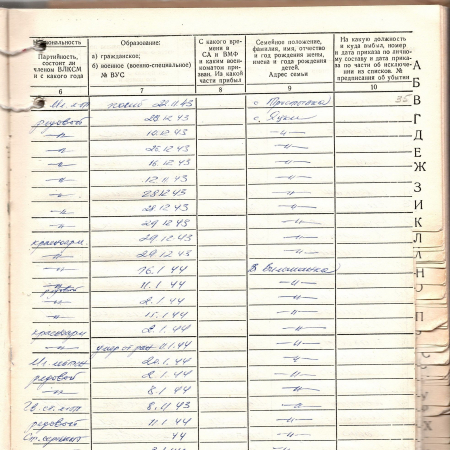 иональность
Партийность, состоит ли членом ВЛКСМ и с какого года
Образование:
а) гражданское;
б) военное (военно-специальное)
№ ВУС
С какого времени в СА и ВМФ и каким военкоматом призван. Из какой части прибыл
Семейное положение, фамилия, имя, отчество и год рождения жены, имена и года рождения детей.
Адрес семьи
На какую должность и куда выбыл, номер и дата приказа по личному составу и дата приказа по части об исключении из списков. № предписания об убытии
6 7 8 9 10
Мл. л-т погиб 22.11.43 с.
рядовой 28.12.43 с.
–"– 10.12.43 –"–
–"– 26.12.43 –"–
–"– 16.12.43 –"–
–"– 12.11.43 –"–
–"– 28.12.43 –"–
–"– 28.12.43 –"–
–"– 29.12.43 –"–
красноарм. 29.12.43 –"–
–"– 29.12.43 –"–
–"– 16.1.44
рядовой 11.1.44 –"–
–"– 2.1.44 –"–
–"– 15.1.44 –"–
красноарм 2.1.44 –"–
–"– умер от ран 11.1.44 –"–
Мл. лейтен 20.1.44 –"–
рядовой 2.1.44 –"–
–"– 8.1.44 –"–
Гв. ст. л-т 8.11.43 –"–
рядовой 11.1.44 –"–
Ст. сержант 44 –"–
А
Б
В
Г
Д
Е
Ж
З
И
К
Л
Н
О
П